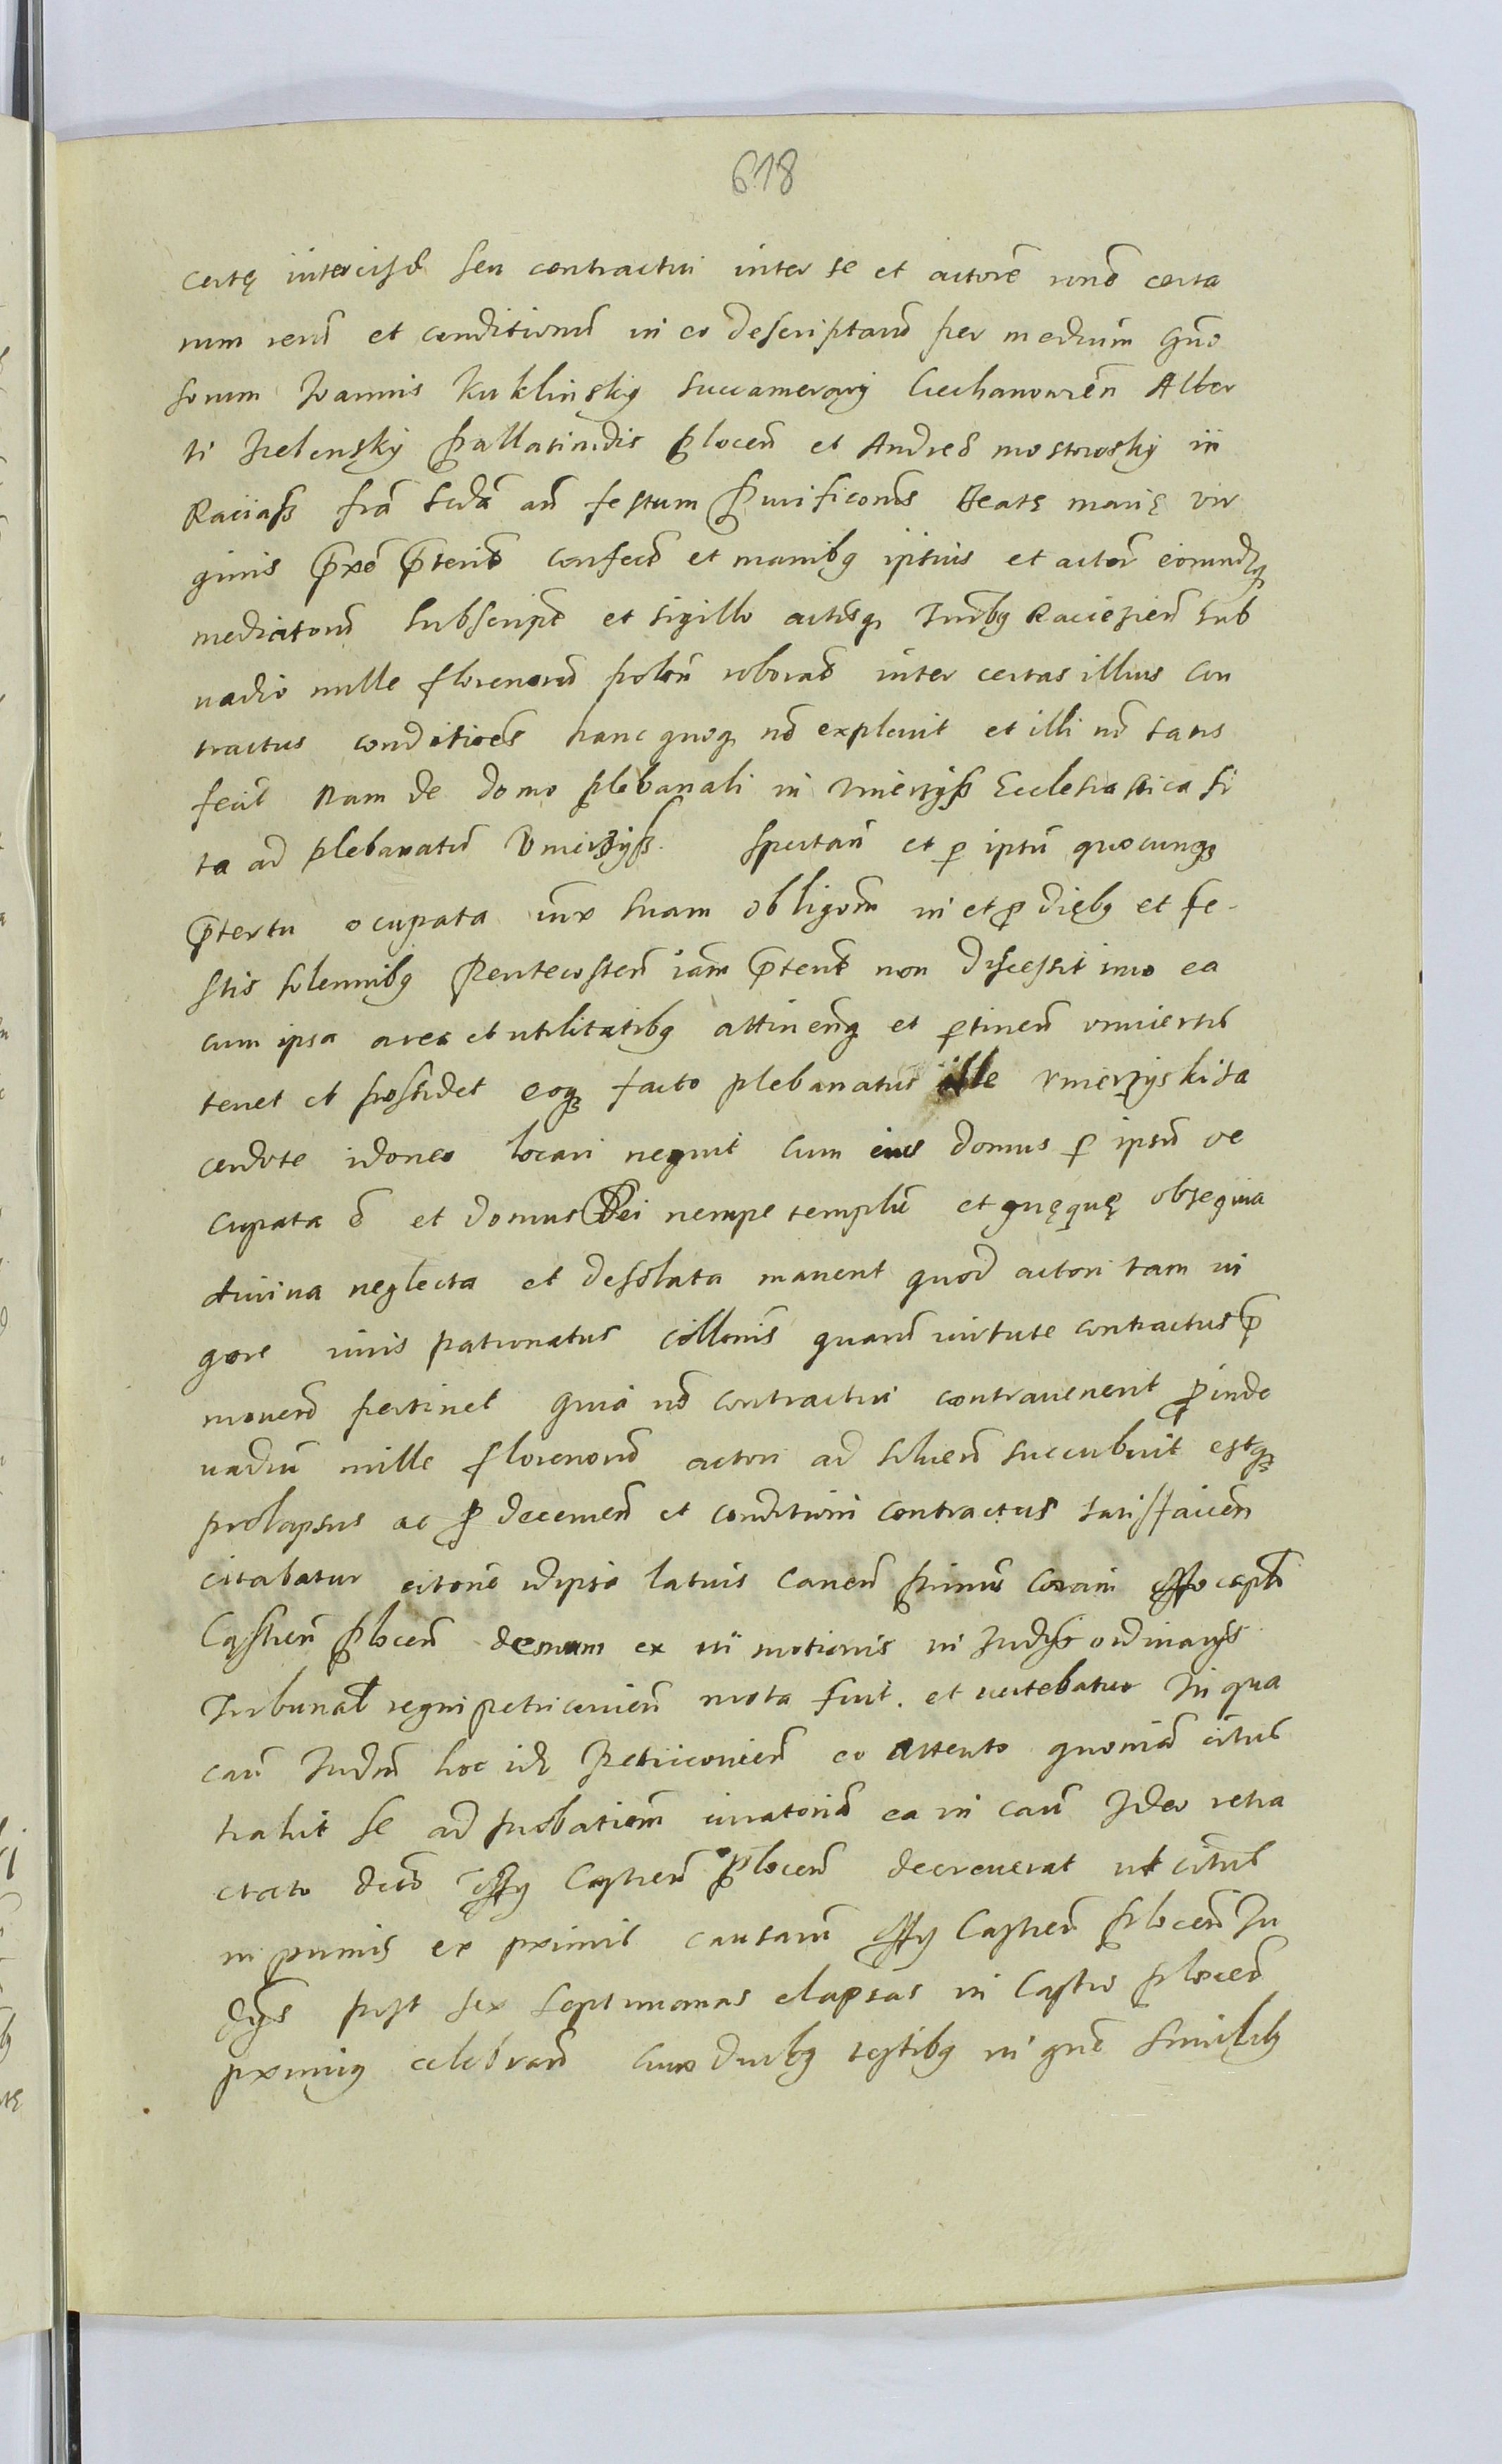 618
certę intercisę seu contractui inter se et actorē rōne certa
rum rerū et conditionū in eo descriptarū per medium gn̄o
sorum Joannis Kuklinsky succamerary Ciechanowien̄ Alber
ti Zielensky Pallatinidis Plocen̄ et Andreę mostowsky in
Raciaß fr̄a scd̄a an̄ festum Purificōnis Beatę marię vir
ginis p̄xē p̄terit confect et manibꝫ ipsius et actor eorundꝫ
mediatorū subscript et sigillo actisqꝫ Terr̄bꝫ Raciezien̄ sub
vadio mille florenorū polon̄ roborat inter certas illius con
tractus conditiōes hanc quoqꝫ nō explevit et illi nō satis
fecit Nam de domo plebanali in Vnierzyß Ecclesiastica si
ta ad plebanatū Vnierzyß. spectan̄ et ꝑ ipsū quocunqꝫ
p̄textu ocupata iux suam obligōm in et ꝓ diebꝫ et fe-
stis solennibꝫ Pentecosten̄ iam p̄terit non discessit imo ea
cum ipsa area et utilitatibꝫ attinen̄ꝫ et ꝑtinen̄ vniversis
tenet et possidet eoqꝫ facto plebanatus ille vnierzyski sa
cerdote idoneo locari nequit cum eius domus ꝑ ipsū oc
cupata ē et domus Dei nempe templū et quęquę obsequia
divina neglecta et desolata manent quod actori tam vi
gore iuris patronatus collōnis quam virtute contractus ꝓ
movero pertinet quia nō contractui contravenerit proinde
vadiū mille florenorū actori ad solven̄ succubuit estqꝫ
prolapsus ac ꝓ decernen̄ et conditioni contractus satisfacien̄
citabatur citōne idipso latius canen̄ primū coram offo capt̄
Castren̄ Plocen̄ demum ex vi motionis in Judyß ordinarys
Tribunal regni petricovien̄ mota fuit. et vertebatur In qua
cau̅ Judm̄ hoc idꝫ Petricovien̄ eo attento quoniā citus
trahit se ad probatiōem iuratoriā ea in cau̅ Ideo retra
ctato dcto Offy Castren̄ Plocen̄ decreverat ut citus
in primis ex primis causarū Offy Castren̄ Plocen̄ Ju
dys post sex septimanas elapsas in Castro Plocen̄
proximiꝫ celebran̄ cum duobꝫ testibꝫ in gn̄e similibꝫ